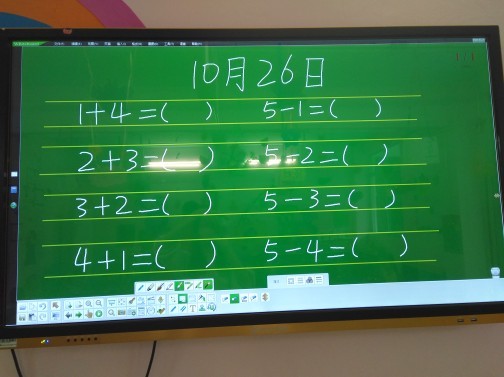 10月26日
1+4=( ) 5-1=( )
2+3=( ) 5-2=( )
3+2=( ) 5-3=( )
4+1=( ) 5-4=( )